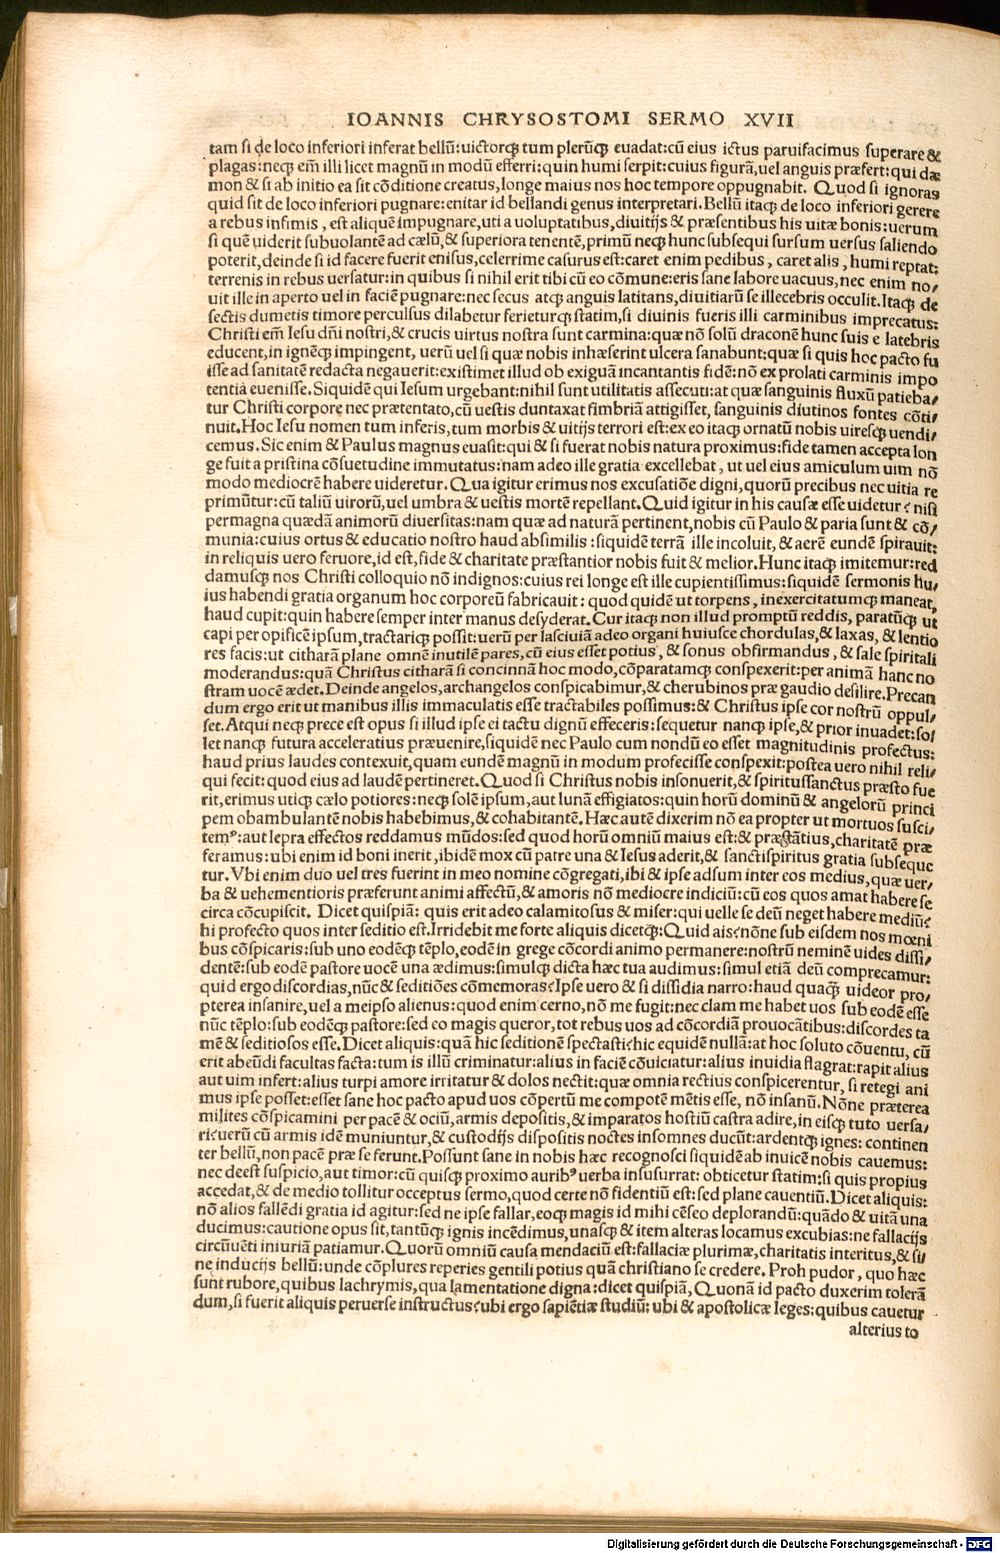 IOANNIS CHRYSOSTOMI SERMO XVII
tam si de loco inferiori inferat bellū:uictorqꝫ tum plerūqꝫ euadat:cū eius ictus paruifacimus superare &
plagas:neqꝫ em̄ illi licet magnū in modū efferri:quin humi serpit:cuius figurā,uel anguis præfert:qui dæ
mon & si ab initio ea sit cōditione creatus,longe maius nos hoc tempore oppugnabit. Quod si ignoras
quid sit de loco inferiori pugnare:enitar id bellandi genus interpretari.Bellū itaqꝫ de loco inferiori gerere
a rebus infimis, est aliquē impugnare,uti a uoluptatibus,diuitijs & præsentibus his uitæ bonis:uerum
si quē uiderit subuolantē ad cælū,& superiora tenentē,primū neqꝫ hunc subsequi sursum uersus saliendo
poterit,deinde si id facere fuerit enisus,celerrime casurus est:caret enim pedibus, caret alis, humi reptat:
terrenis in rebus uersatur:in quibus si nihil erit tibi cū eo cōmune:eris sane labore uacuus,nec enim no/
uit ille in aperto uel in faciē pugnare:nec secus atqꝫ anguis latitans,diuitiarū se illecebris occulit.Itaqꝫ de
sectis dumetis timore perculsus dilabetur ferieturqꝫ statim,si diuinis fueris illi carminibus imprecatus:
Christi em̄ Iesu dn̄i nostri,& crucis uirtus nostra sunt carmina:quæ nō solū draconē hunc suis e latebris
educent,in ignēqꝫ impingent, uerū uel si quæ nobis inhæserint ulcera sanabunt:quæ si quis hoc pacto fu
isse ad sanitatē redacta negauerit:existimet illud ob exiguā incantantis fidē:nō ex prolati carminis impo
tentia euenisse.Siquidē qui Iesum urgebant:nihil sunt utilitatis assecuti:at quæ sanguinis fluxū patieba/
tur Christi corpore nec prætentato,cū uestis duntaxat fimbriā attigisset, sanguinis diutinos fontes cōti/
nuit.Hoc Iesu nomen tum inferis,tum morbis & uitijs terrori est:ex eo itaqꝫ ornatū nobis uiresqꝫ uendi/
cemus.Sic enim & Paulus magnus euasit:qui & si fuerat nobis natura proximus:fide tamen accepta lon
ge fuit a pristina cōsuetudine immutatus:nam adeo ille gratia excellebat, ut uel eius amiculum uim nō
modo mediocrē habere uideretur.Qua igitur erimus nos excusatiōe digni,quorū precibus nec uitia re
primūtur:cū taliū uirorū,uel umbra & uestis mortē repellant.Quid igitur in his causæ esse uidetur? nisi
permagna quædā animorū diuersitas:nam quæ ad naturā pertinent,nobis cū Paulo & paria sunt & cō/
munia:cuius ortus & educatio nostro haud absimilis :siquidē terrā ille incoluit,& aerē eundē spirauit:
in reliquis uero feruore,id est,fide & charitate præstantior nobis fuit & melior.Hunc itaqꝫ imitemur:red
damusqꝫ nos Christi colloquio nō indignos:cuius rei longe est ille cupientissimus:siquidē sermonis hu/
ius habendi gratia organum hoc corporeū fabricauit : quod quidē ut torpens, inexercitatumqꝫ maneat,
haud cupit:quin habere semper inter manus desyderat.Cur itaqꝫ non illud promptū reddis, paratūqꝫ ut
capi per opificē ipsum,tractariqꝫ possit:uerū per lasciuiā adeo organi huiusce chordulas,& laxas, & lentio
res facis:ut citharā plane omnē inutilē pares,cū eius esset potius, & sonus obfirmandus, & sale spiritali
moderandus:quā Christus citharā si concinnā hoc modo,cōparatamqꝫ conspexerit:per animā hanc no
stram uocē ædet.Deinde angelos,archangelos conspicabimur,& cherubinos præ gaudio desilire.Precan
dum ergo erit ut manibus illis immaculatis esse tractabiles possimus:& Christus ipse cor nostrū oppul/
set.Atqui neqꝫ prece est opus si illud ipse ei tactu dignū effeceris:sequetur nanqꝫ ipse,& prior inuadet:so/
let nanqꝫ futura acceleratius præuenire,siquidē nec Paulo cum nondū eo esset magnitudinis profectus:
haud prius laudes contexuit,quam eundē magnū in modum profecisse conspexit:postea uero nihil reli/
qui fecit:quod eius ad laudē pertineret.Quod si Christus nobis insonuerit,& spiritussanctus præsto fue
rit,erimus utiqꝫ cælo potiores:neqꝫ solē ipsum,aut lunā effigiatos:quin horū dominū & angelorū princi
pem obambulantē nobis habebimus,& cohabitantē.Hæc autē dixerim nō ea propter ut mortuos susci/
temꝰ:aut lepra effectos reddamus mūdos:sed quod horū omniū maius est:& præstātius,charitatē præ
feramus:ubi enim id boni inerit,ibidē mox cū patre una & Iesus aderit,& sanctispiritus gratia subseque
tur.Vbi enim duo uel tres fuerint in meo nomine cōgregati,ibi & ipse adsum inter eos medius,quæ uer/
ba & uehementioris præferunt animi affectū,& amoris nō mediocre indiciū:cū eos quos amat habere se
circa cōcupiscit. Dicet quispiā: quis erit adeo calamitosus & miser:qui uelle se deū neget habere mediū?
hi profecto quos inter seditio est.Irridebit me forte aliquis dicetqꝫ:Quid ais?nōne sub eisdem nos mœni
bus cōspicaris:sub uno eodēqꝫ tēplo,eodē in grege cōcordi animo permanere:nostrū neminē uides dissi/
dentē:sub eodē pastore uocē una ædimus:simulqꝫ dicta hæc tua audimus:simul etiā deū comprecamur:
quid ergo discordias,nūc & seditiōes cōmemoras?Ipse uero & si dissidia narro:haud quaqꝫ̄ uideor pro/
pterea insanire,uel a meipso alienus:quod enim cerno,nō me fugit:nec clam me habet uos sub eodē esse
nūc tēplo:sub eodēqꝫ pastore:sed eo magis queror,tot rebus uos ad cōcordiā prouocātibus:discordes ta
mē & seditiosos esse.Dicet aliquis:quā hic seditionē spectasti?hic equidē nullā:at hoc soluto cōuentu, cū
erit abeūdi facultas facta:tum is illū criminatur:alius in faciē cōuiciatur:alius inuidia flagrat:rapit alius
aut uim infert:alius turpi amore irritatur & dolos nectit:quæ omnia rectius conspicerentur, si retegi ani
mus ipse posset:esset sane hoc pacto apud uos cōpertū me compotē mētis esse, nō insanū.Nōne præterea
milites cōspicamini per pacē & ociū,armis depositis,& imparatos hostiū castra adire,in eisqꝫ tuto uersa/
ri?uerū cū armis idē muniuntur,& custodijs dispositis noctes insomnes ducūt:ardentqꝫ ignes: continen
ter bellū,non pacē præ se ferunt.Possunt sane in nobis hæc recognosci siquidē ab inuicē nobis cauemus:
nec deest suspicio,aut timor:cū quisqꝫ proximo auribꝰ uerba insusurrat: obticetur statim:si quis propius
accedat,& de medio tollitur occeptus sermo,quod certe nō fidentiū est:sed plane cauentiū.Dicet aliquis:
nō alios fallēdi gratia id agitur:sed ne ipse fallar,eoqꝫ magis id mihi cēseo deplorandū:quādo & uitā una
ducimus:cautione opus sit,tantūqꝫ ignis incēdimus,unasqꝫ & item alteras locamus excubias:ne fallacijs
circūuēti iniuriā patiamur.Quorū omniū causa mendaciū est:fallaciæ plurimæ,charitatis interitus,& si/
ne inducijs bellū:unde cōplures reperies gentili potius quā christiano se credere.Proh pudor, quo hæc
sunt rubore,quibus lachrymis,qua lamentatione digna:dicet quispiā,Quonā id pacto duxerim tolerā
dum,si fuerit aliquis peruerse instructus?ubi ergo sapiētiæ studiū: ubi & apostolicæ leges:quibus cauetur
alterius to
Digitalisierung gefördert durch die Deutsche Forschungsgemeinschaft - DFG